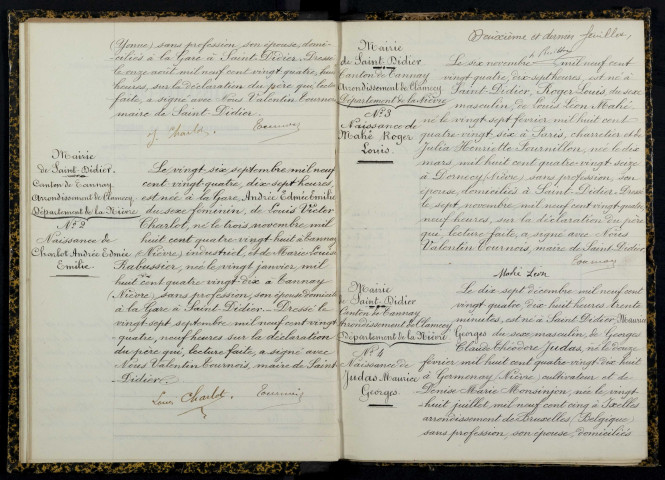 (Yonne) sans profession, son épouse, domi-
ciliés à la Gare à Saint-Didier. Dressé
le onze août mil neuf cent vingt quatre, huit
heures, sur la déclaration du père qui, lecture
faite, a signé avec Nous Valentin Tournois,
maire de Saint-Didier.
J. Charlot. Tournois
Mairie
de Saint-Didier
Canton de Tannay
Arrondissement de Clamecy
Département de la Nièvre
N° 2
Naissance de
Charlot Andrée Edmée
Emilie
Le vingt six septembre mil neuf
cent vingt-quatre, dix sept heures,
est née à la Gare, Andrée Edmée Emilie
du sexe féminin, de Louis Victor
Charlot, né le trois novembre mil
huit cent quatre vingt-huit à Tannay
(Nièvre) industriel, et de Marie Louise
Rabussier, née le vingt janvier mil
huit cent quatre vingt-dix à Tannay
(Nièvre), sans profession, son épouse domiciliés
à la Gare à Saint-Didier. Dressé le
vingt-sept septembre mil neuf cent vingt
quatre, neuf heures sur la déclaration
du père qui, lecture faite, a signé avec
Nous Valentin Tournois, maire de Saint-
Didier.
Louis Charlot. Tournois
Deuxième et dernier feuillet,
Mairie
de Saint-Didier
Canton de Tannay
Arrondissement de Clamecy
Département de la Nièvre
N° 3
Naissance de
Mahé Roger
Louis.
Le six novembre mil neuf cent
vingt quatre, dix sept heures, est né à
Saint-Didier, Roger Louis du sexe
masculin, de Louis Léon Mahé
né le vingt sept février mil huit cent
quatre-vingt-six à Paris, charretier et de
Julia Henriette Fournillon, née le dix
mars, mil huit cent quatre vingt seize
à Dornecy (Nièvre) sans profession, son
épouse, domiciliés à Saint-Didier. Dressé
le sept novembre, mil neuf cent vingt-quatre,
neuf heures, sur la déclaration du père
qui, lecture faite, a signé avec Nous
Valentin Tournois, maire de Saint-Didier
Tournois
Mahé Léon
Mairie
de Saint-Didier
Canton de Tannay
Arrondissement de Clamecy
Département de la Nièvre
N° 4
Naissance de
Judas Maurice
Georges.
Le dix sept décembre mil neuf cent
vingt quatre, dix huit heures, trente
minutes, est né à Saint Didier Maurice
Georges du sexe masculin, de Georges
Claude Théodore Judas, né le douze
février mil huit cent quatre vingt-dix huit
à Germenay (Nièvre) cultivateur et de
Denise Marie Monsinjon, née le vingt-
huit juillet, mil neuf cent cinq à Ixelles
arrondissement de Bruxelles (Belgique)
sans profession, son épouse, domiciliés